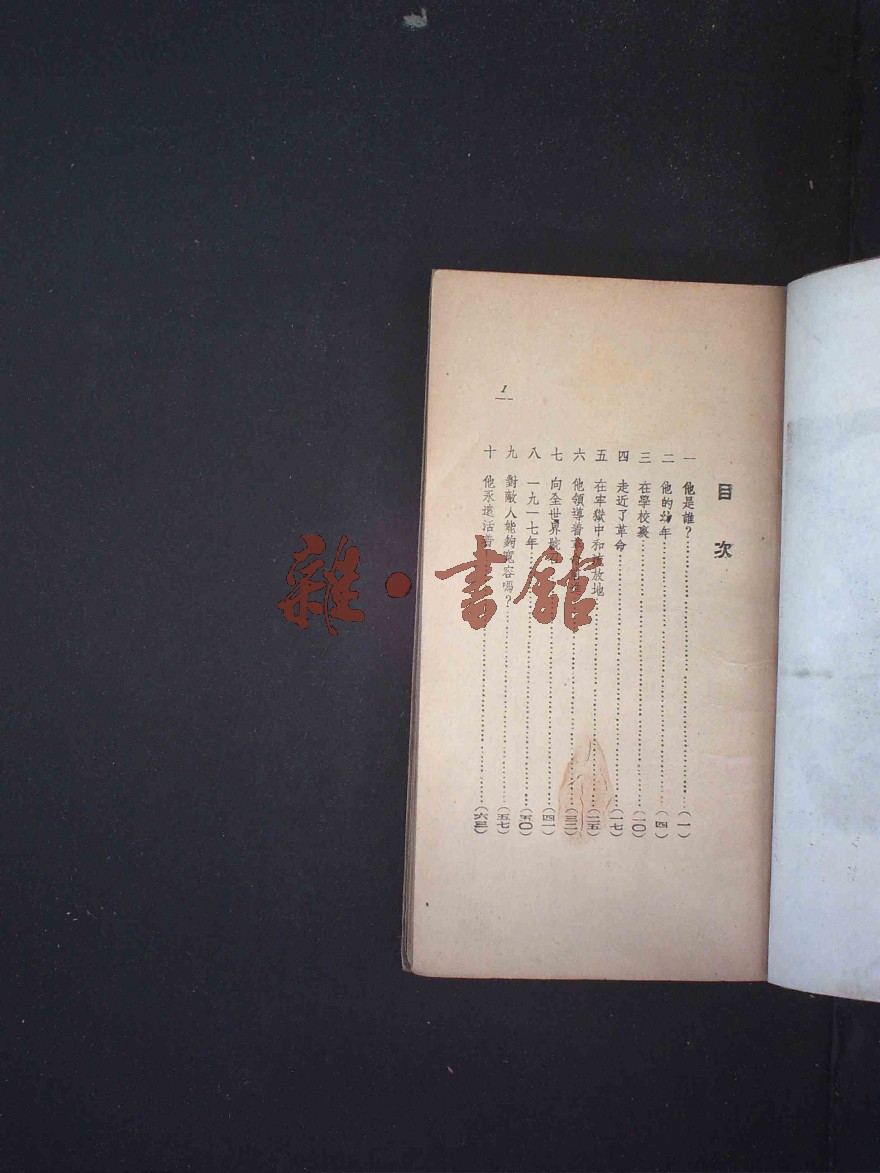 目次
一 他是誰？……(一)
二 他的幼年……(四)
三 在學校裏……(一〇)
四 走近了革命……(一七)
五 在牢獄中和流放地……(二五)
六 他領導着……(三二)
七 向全世界……(四一)
八 一九一七年……(五〇)
九 對敵人能夠寬容嗎？……(五七)
十 他永遠活着……(六三)
1
雜·書館